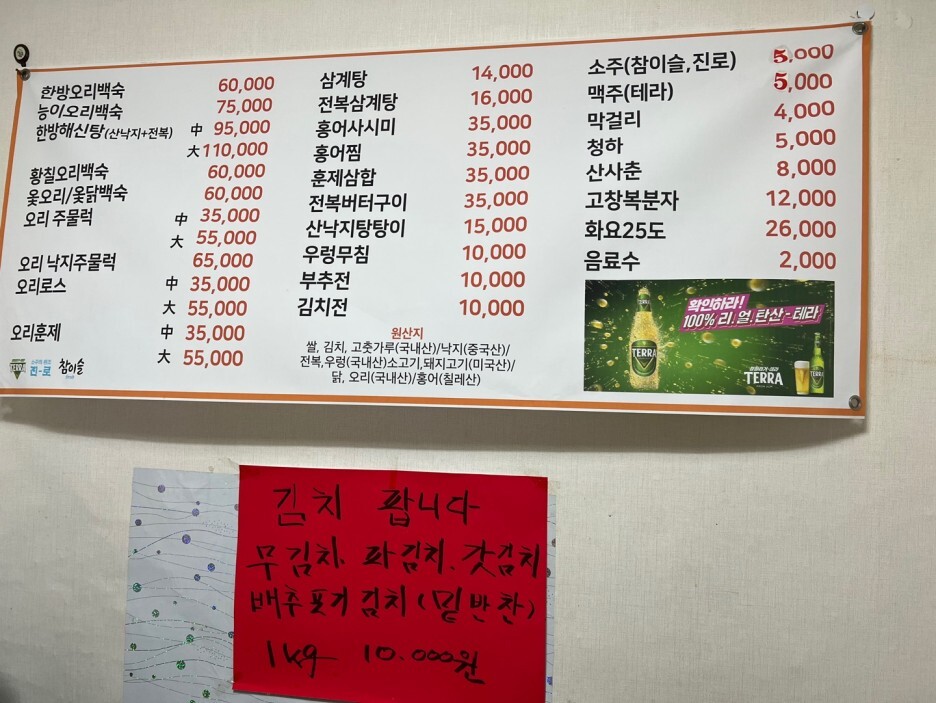 한방오리백숙 60,000
능이오리백숙 75,000
한방해신탕(산낙지+전복) 中 95,000
大 110,000
황칠오리백숙 60,000
옻오리/옻닭백숙 60,000
오리 주물럭 中 35,000
大 55,000
오리 낙지주물럭 65,000
오리로스 中 35,000
大 55,000
오리훈제 中 35,000
大 55,000
TERRA 진-로 참이슬
삼계탕 14,000
전복삼계탕 16,000
홍어사시미 35,000
홍어찜 35,000
훈제삼합 35,000
전복버터구이 35,000
산낙지탕탕이 15,000
우렁무침 10,000
부추전 10,000
김치전 10,000
원산지
쌀, 김치, 고춧가루(국내산)/낙지(중국산)/
전복,우렁(국내산)소고기,돼지고기(미국산)/
닭, 오리(국내산)/홍어(칠레산)
소주(참이슬,진로) 5,000
맥주(테라) 5,000
막걸리 4,000
청하 5,000
산사춘 8,000
고창복분자 12,000
화요25도 26,000
음료수 2,000
확인하라!
100% 리.얼.탄산-테라
TERRA
TERRA
김치 팝니다
무김치. 파김치. 갓김치
배추포기김치(밑반찬)
1kg 10.000원